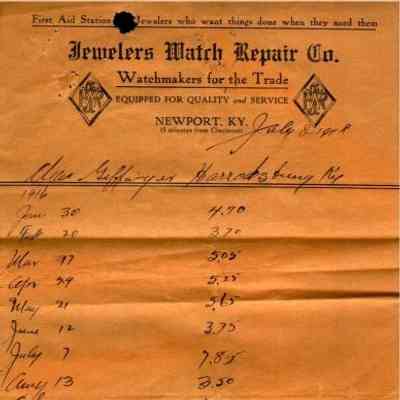 First Aid Station Jewelers who want things done when they need them
Jewelers Watch Repair Co.
Watchmakers for the Trade
EQUIPPED FOR QUALITY and SERVICE
NEWPORT, KY.
(5 minutes from Cincinnati)
July
Chas Harrodsburg Ky
1916
Jan 30 4.70
Feb 20 3.70
Mar 17 5.05
Apr 29 5.25
May 21 5.65
June 12 3.75
July 7 7.85
Aug 13 3.50